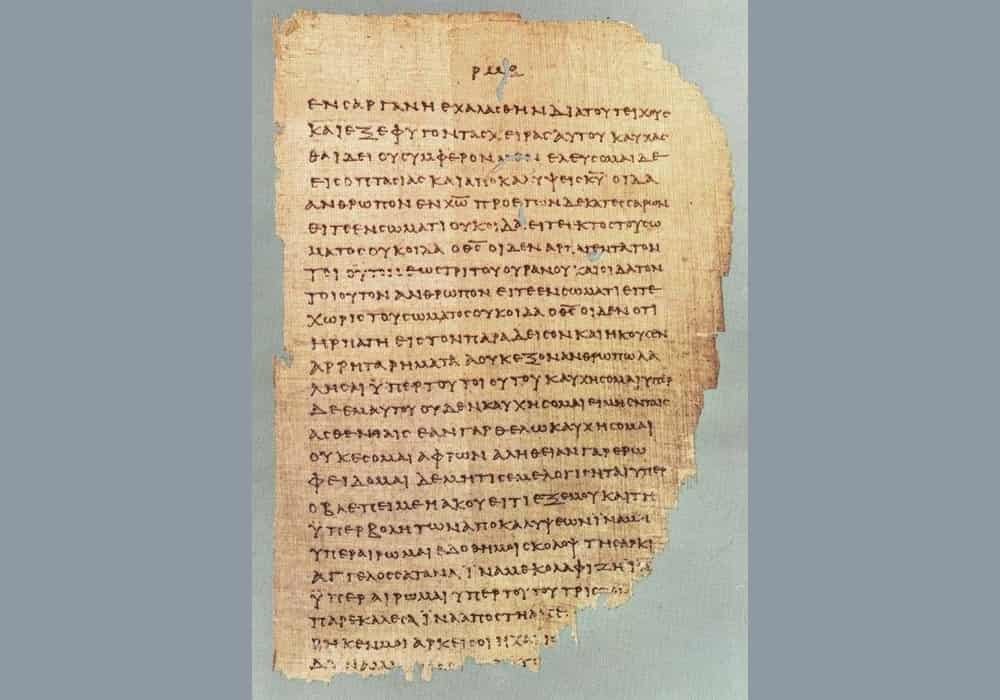 ΕΝ ΣΑΡΓΑΝΗ ΕΧΑΛΑΣΘΗΝ ΔΙΑ ΤΟΥ ΤΕΙΧΟΥΣ
ΚΑΙ ΕΞΕΦΥΓΟΝ ΤΑΣ ΧΕΙΡΑΣ ΑΥΤΟΥ ΚΑΥΧΑΣ
ΘΑΙ ΔΕΙ ΟΥ ΣΥΜΦΕΡΟΝ ΕΛΕΥΣΟΜΑΙ ΔΕ
ΕΙΣ ΟΠΤΑΣΙΑΣ ΚΑΙ ΑΠΟΚΑΛΥΨΕΙΣ Κ̅Υ̅ ΟΙΔΑ
ΑΝΘΡΩΠΟΝ ΕΝ Χ̅Ω̅ ΠΡΟ ΕΤΩΝ ΔΕΚΑΤΕΣΣΑΡΩΝ
ΕΙΤΕ ΕΝ ΣΩΜΑΤΙ ΟΥΚ ΟΙΔΑ ΕΙΤΕ ΕΚΤΟΣ ΤΟΥ ΣΩ
ΜΑΤΟΣ ΟΥΚ ΟΙΔΑ Ο Θ̅Σ̅ ΟΙΔΕΝ ΑΡΠΑΓΕΝΤΑ ΤΟΝ
ΤΟΙΟΥΤΟΝ ΕΩΣ ΤΡΙΤΟΥ ΟΥΡΑΝΟΥ ΚΑΙ ΟΙΔΑ ΤΟΝ
ΤΟΙΟΥΤΟΝ ΑΝΘΡΩΠΟΝ ΕΙΤΕ ΕΝ ΣΩΜΑΤΙ ΕΙΤΕ
ΧΩΡΙΣ ΤΟΥ ΣΩΜΑΤΟΣ ΟΥΚ ΟΙΔΑ Ο Θ̅Σ̅ ΟΙΔΕΝ ΟΤΙ
ΗΡΠΑΓΗ ΕΙΣ ΤΟΝ ΠΑΡΑΔΕΙΣΟΝ ΚΑΙ ΗΚΟΥΣΕΝ
ΑΡΡΗΤΑ ΡΗΜΑΤΑ Α ΟΥΚ ΕΞΟΝ ΑΝΘΡΩΠΩ ΛΑ
ΛΗΣΑΙ ΫΠΕΡ ΤΟΥ ΤΟΙΟΥΤΟΥ ΚΑΥΧΗΣΟΜΑΙ ΥΠΕΡ
ΔΕ ΕΜΑΥΤΟΥ ΟΥΔΕΝ ΚΑΥΧΗΣΟΜΑΙ ΕΙ ΜΗ ΕΝ ΤΑΙΣ
ΑΣΘΕΝΕΙΑΙΣ ΕΑΝ ΓΑΡ ΘΕΛΩ ΚΑΥΧΗΣΟΜΑΙ
ΟΥΚ ΕΣΟΜΑΙ ΑΦΡΩΝ ΑΛΗΘΕΙΑΝ ΓΑΡ ΕΡΩ
ΦΕΙΔΟΜΑΙ ΔΕ ΜΗ ΤΙΣ ΕΜΕ ΛΟΓΙΣΗΤΑΙ ΥΠΕΡ
Ο ΒΛΕΠΕΙ ΜΕ Η ΑΚΟΥΕΙ ΤΙ ΕΞ ΕΜΟΥ ΚΑΙ ΤΗ
ΫΠΕΡΒΟΛΗ ΤΩΝ ΑΠΟΚΑΛΥΨΕΩΝ ΪΝΑ ΜΗ
ΥΠΕΡΑΙΡΩΜΑΙ ΕΔΟΘΗ ΜΟΙ ΣΚΟΛΟΨ ΤΗ ΣΑΡΚΙ
ΑΓΓΕΛΟΣ ΣΑΤΑΝΑ ΪΝΑ ΜΕ ΚΟΛΑΦΙΖΗ
ΫΠΕΡΑΙΡΩΜΑΙ ΥΠΕΡ ΤΟΥΤΟΥ ΤΡΙΣ
ΠΑΡΕΚΑΛΕΣΑ ΪΝΑ ΑΠΟΣΤΗ
ΡΗΚΕΝ ΜΟΙ ΑΡΚΕΙ ΣΟΙ Η ΧΑ